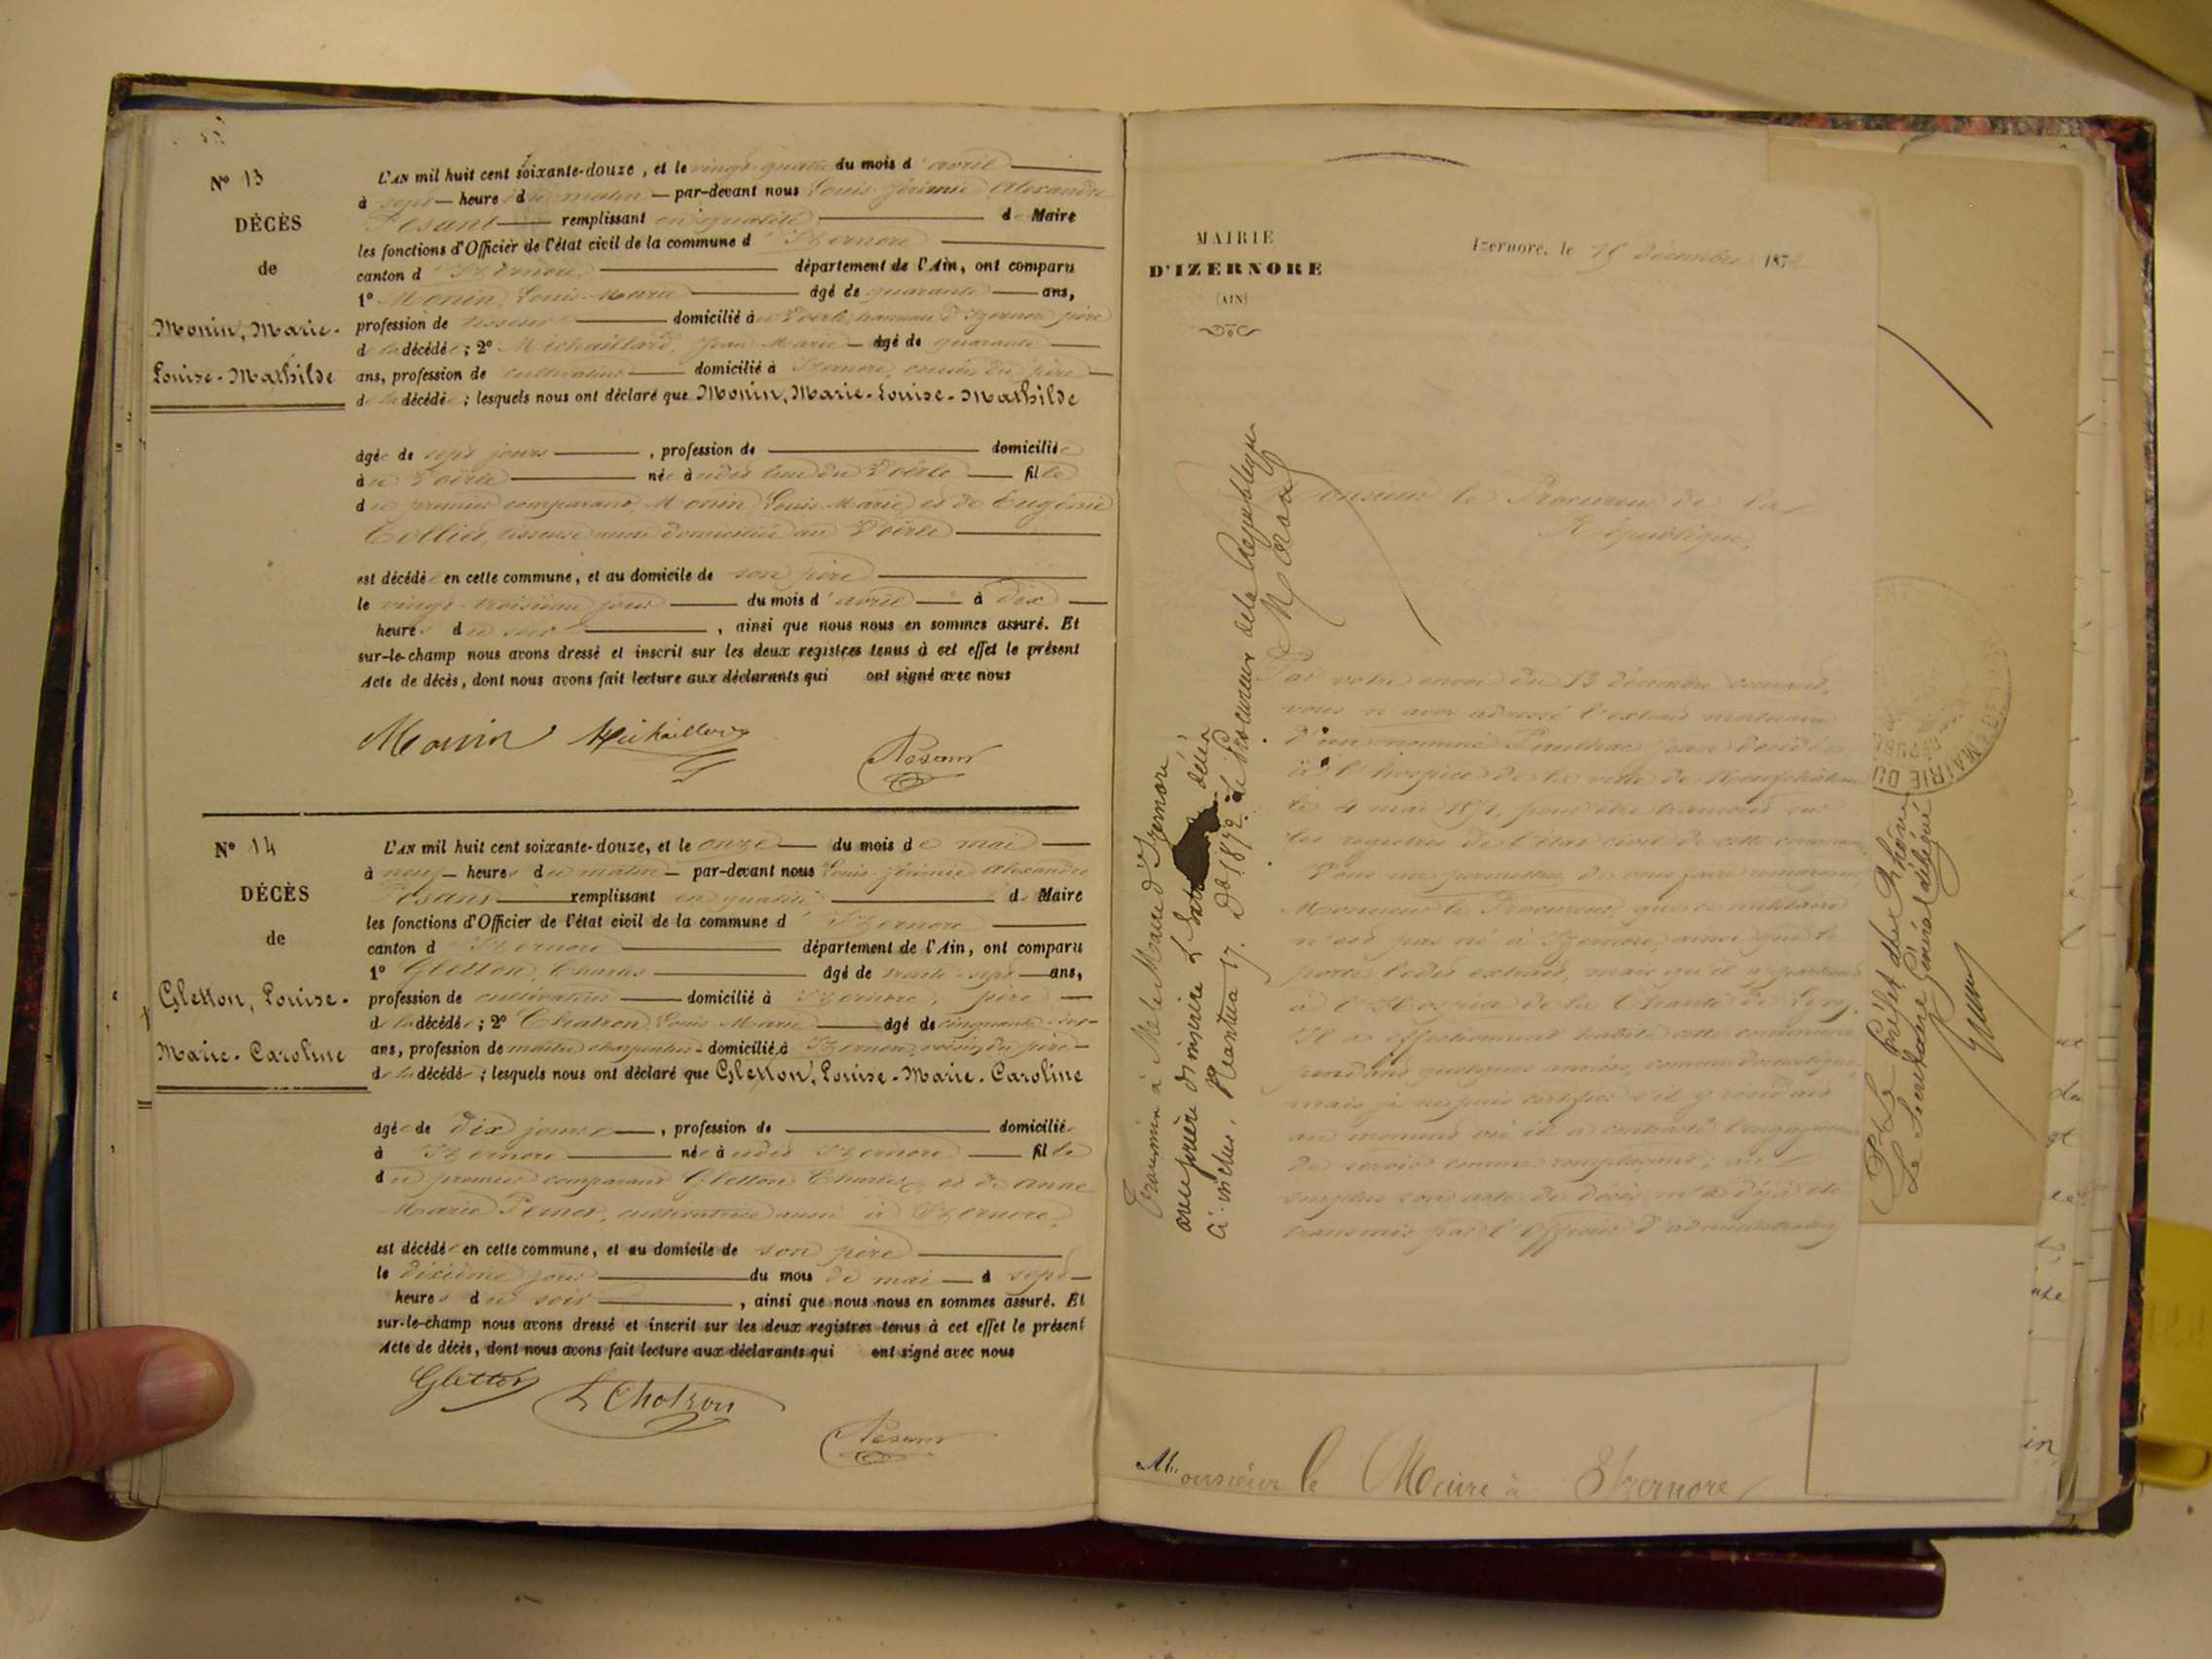 N° 13
DÉCÈS
de
Monin, Marie-
Louise-Mathilde
L'AN mil huit cent soixante-douze, et le vingt-quatre du mois d'avril
à sept heure du matin par-devant nous Louis Jérémie Alexandre
Pesant remplissant en qualité de Maire
les fonctions d'Officier de l'état civil de la commune d'Izernore
canton d'Izernore département de l'Ain, ont comparu
1° Monin, Louis Marie âgé de quarante ans,
profession de tisseur domicilié à Voërle, hameau d'Izernore père
de la décédée ; 2° Michaillard, Jean Marie âgé de quarante
ans, profession de cultivateur domicilié à Izernore, cousin du père
de la décédée ; lesquels nous ont déclaré que Monin, Marie-Louise-Mathilde
âgée de sept jours, profession de domiciliée
au Voërle née audit lieu du Voërle fille
du premier comparant Monin, Louis Marie, et de Eugénie
Collet, tisseuse aussi domiciliée au Voërle
est décédée en cette commune, et au domicile de son père
le vingt-troisième jour du mois d'avril à dix
heures du soir, ainsi que nous nous en sommes assuré. Et
sur-le-champ nous avons dressé et inscrit sur les deux registres tenus à cet effet le présent
Acte de décès, dont nous avons fait lecture aux déclarants qui ont signé avec nous
Monin Michaillard
Pesant
N° 14
DÉCÈS
de
Gletton, Louise-
Marie-Caroline
L'AN mil huit cent soixante-douze, et le onze du mois de mai
à neuf heures du matin par-devant nous Louis Jérémie Alexandre
Pesant remplissant en qualité de Maire
les fonctions d'Officier de l'état civil de la commune d'Izernore
canton d'Izernore département de l'Ain, ont comparu
1° Gletton, Charles âgé de trente-sept ans,
profession de cultivateur domicilié à Izernore, père
de la décédée ; 2° Chatron Louis Marie âgé de cinquante
ans, profession de maître charpentier domicilié à Izernore, voisin du père
de la décédée ; lesquels nous ont déclaré que Gletton, Louise-Marie-Caroline
âgée de dix jours, profession de domiciliée
à Izernore née audit Izernore fille
du premier comparant Gletton Charles, et de Anne
Marie Pernet, cultivatrice aussi à Izernore,
est décédée en cette commune, et au domicile de son père
le dixième jour du mois de mai à sept
heures du soir, ainsi que nous nous en sommes assuré. Et
sur-le-champ nous avons dressé et inscrit sur les deux registres tenus à cet effet le présent
Acte de décès, dont nous avons fait lecture aux déclarants qui ont signé avec nous
Gletton L Chatron
Pesant
MAIRIE
D'IZERNORE
(AIN)
Izernore, le décembre 187
Monsieur le Procureur de la
République,
Par votre envoi du 13 décembre courant,
vous m'avez adressé l'extrait mortuaire
d'un nommé Paulhac Jean décédé
à l'hospice de la ville de Neufchâteau
le 4 mai 1871, pour être transcrit sur
les registres de l'état civil de cette commune
Vous me permettrez de vous faire remarquer
Monsieur le Procureur, que ce militaire
n'est pas né à Izernore, ainsi que le
porte ledit extrait, mais qu'il appartenait
à l'Hospice de la Charité de Lyon.
Il a effectivement habité cette commune
pendant quelques années, comme domestique
mais je ne puis certifier s'il y résidait
au moment où il a contracté l'engagement
de service comme remplaçant; au
surplus son acte de décès m'a déjà été
transmis par l'officier d'administration
Transmis à M. le Maire d'Izernore
avec prière d'inscrire
ci-inclus. Nantua 17. Dbre 1872. Le Procureur de la République
Pr Le Préfet du Rhône
Le Secrétaire Général délégué
MAIRIE DU
Monsieur le Maire à Izernore